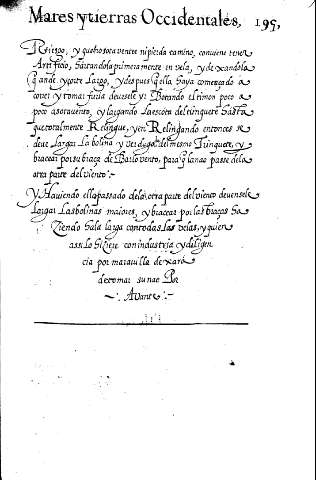 Mares y tierras Occidentales, 195,
Riesgo, y que no sotavente ni pierda camino, conviene tener
Artificio, haziendola primeramente en vela, y dexandola
q ande y corte Largo, y despues q ella haya començado a
correr y tomar furia devesele yr Botando el timon poco a
poco a sotavento, y largando La escota del trinquete hasta
que totalmente Relingue, y en Relingando entonces se
deve Largar La bolina y verdugo del mismo Trinquete, y
bracear por su braço de Barlovento, para q la nao passe de la
otra parte del viento.
Y Haviendo ella passado de la otra parte del viento devensele
Largar Las bolinas maiores, y bracear por las braças ha
Ziendo hala larga con todas las velas, y quien
assi lo hiziere con industria y diligen
cia por maravilla dexara
de tomar su nao Por
Avante